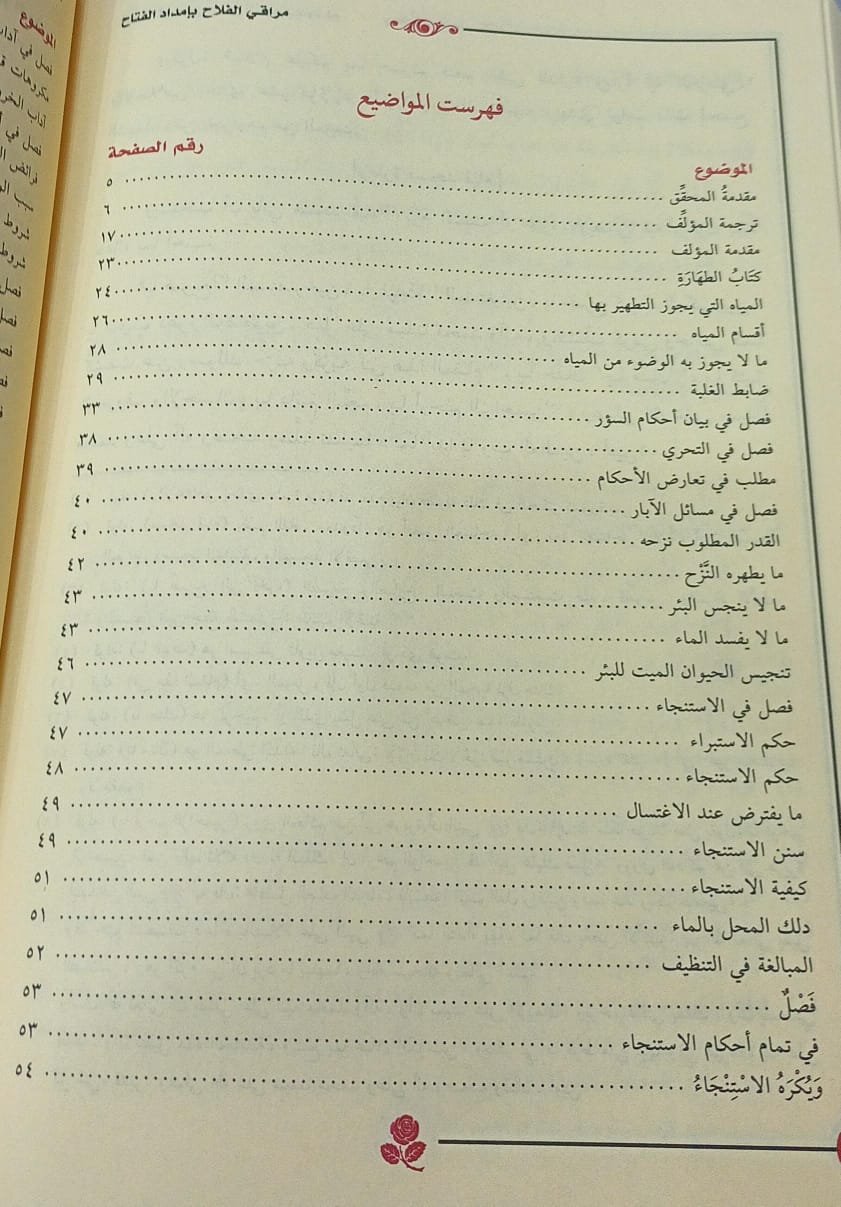 مراقي الفلاح بإمداد الفتاح
فهرست المواضيع
الموضوع رقم الصفحة
مقدمةُ المحقِّق ٥
ترجمة المؤلِّف ٦
مقدمة المؤلف ١٧
كتَابُ الطهَارَةِ ٢٣
المياه التي يجوز التطهير بها ٢٤
أقسام المياه ٢٦
ما لا يجوز به الوضوء من المياه ٢٨
ضابط الغلبة ٢٩
فصل في بيان أحكام السؤر ٣٣
فصل في التحري ٣٨
مطلب في تعارض الأحكام ٣٩
فصل في مسائل الآبار ٤٠
القدر المطلوب نزحه ٤٠
ما يطهره النَّزْح ٤٢
ما لا ينجس البئر ٤٣
ما لا يفسد الماء ٤٣
تنجيس الحيوان الميت للبئر ٤٦
فصل في الاستنجاء ٤٧
حكم الاستبراء ٤٧
حكم الاستنجاء ٤٨
ما يفترض عند الاغتسال ٤٩
سنن الاستنجاء ٤٩
كيفية الاستنجاء ٥١
دلك المحل بالماء ٥١
المبالغة في التنظيف ٥٢
فَصْلٌ ٥٣
في تمام أحكام الاستنجاء ٥٣
وَيُكْرَهُ الاسْتِنْجَاءُ ٥٤
الموضوع
فصل في
مكروهات
فصل في
شروط